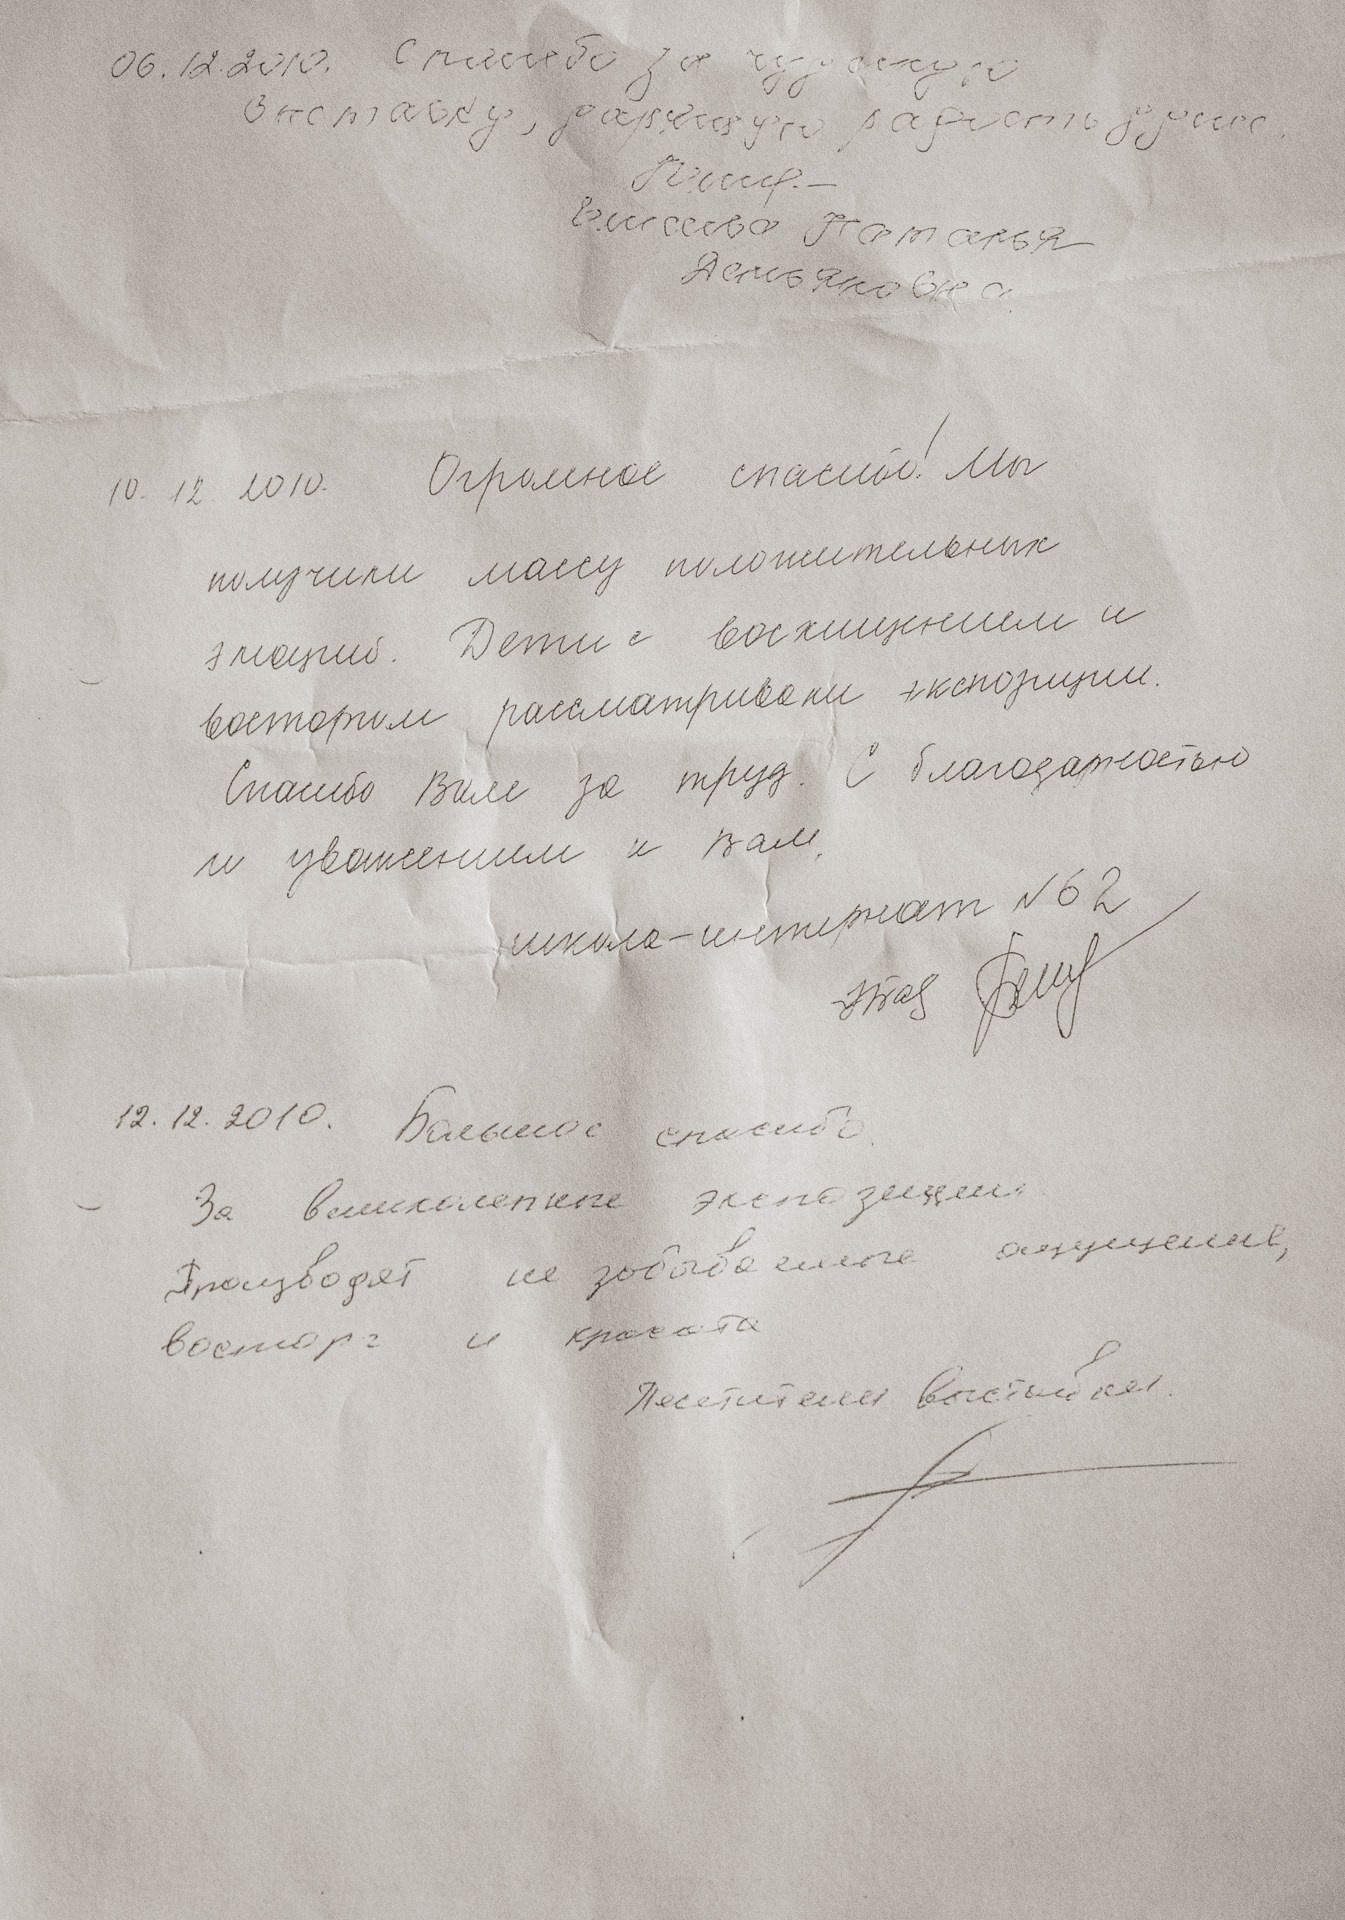 06.12.2010. Спасибо за чудесную
выставку, дарящую радость душе.
Наталья
Демьяновна.
10.12.2010. Огромное спасибо! Мы
получили массу положительных
эмоций. Дети с восхищением и
восторгом рассматривали экспозиции.
Спасибо Вам за труд. С благодарностью
и уважением к Вам,
школа-интернат №62
12.12.2010. Большое спасибо.
За великолепные экспозиции.
Производят не забываемые ощущения,
восторг и красота
Посетители выставки.